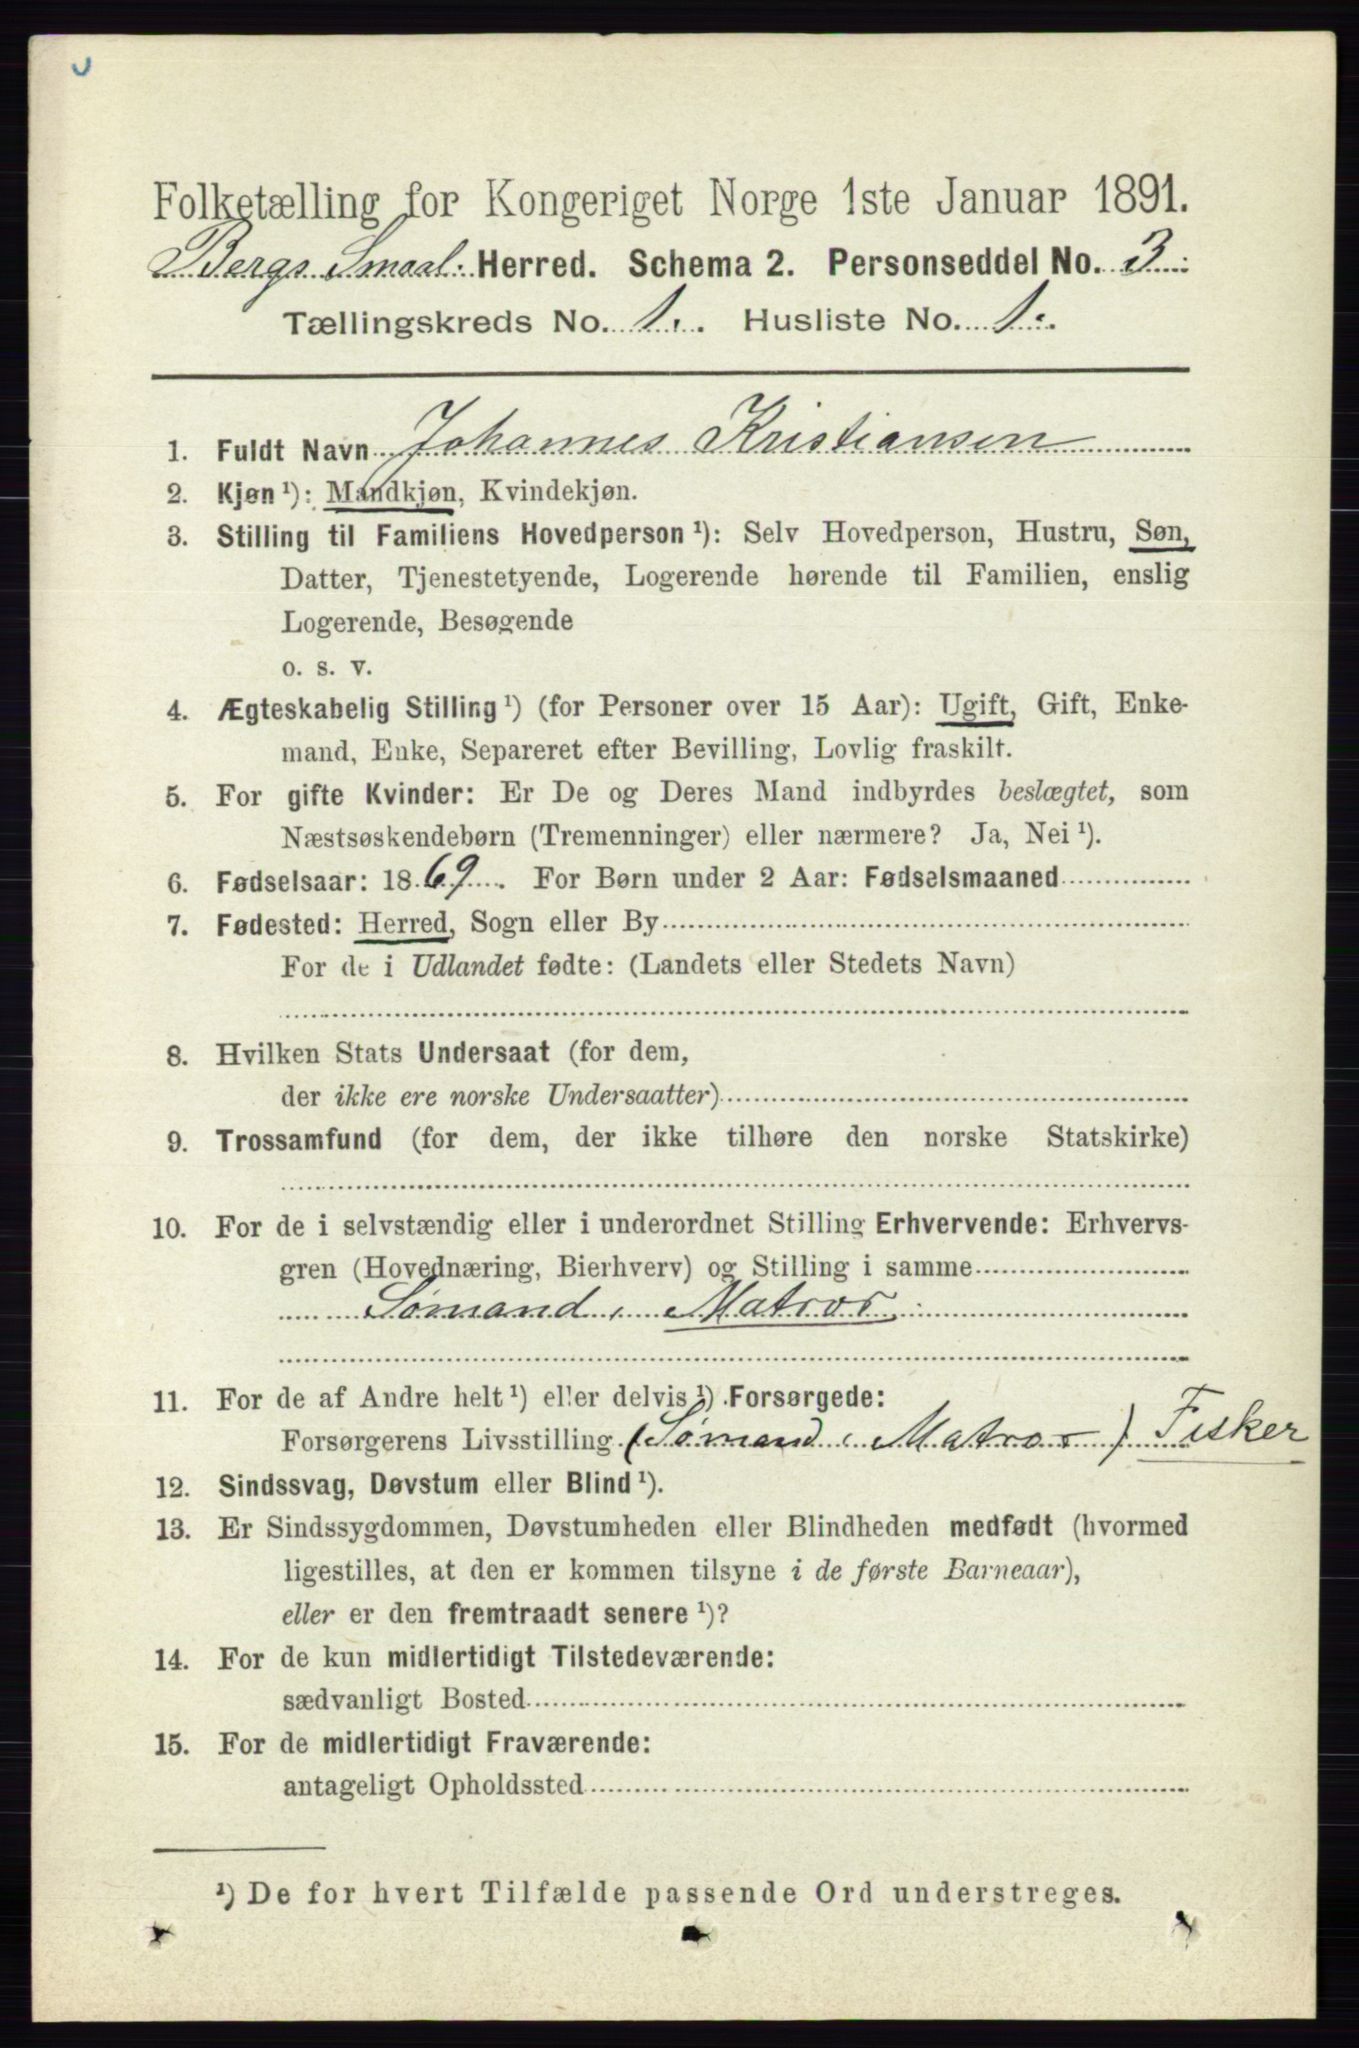 Folketælling for Kongeriget Norge 1ste Januar 1891.
Bergs Smaal. Herred. Schema 2. Personseddel No. 3
Tællingskreds No. 1. Husliste No. 1.
1. Fuldt Navn Johannes Kristiansen
2. Kjøn ¹): Mandkjøn, Kvindekjøn.
3. Stilling til Familiens Hovedperson ¹): Selv Hovedperson, Hustru, Søn,
Datter, Tjenestetyende, Logerende hørende til Familien, enslig
Logerende, Besøgende
o. s. v.
4. Ægteskabelig Stilling ¹) (for Personer over 15 Aar): Ugift, Gift, Enke-
mand, Enke, Separeret efter Bevilling, Lovlig fraskilt.
5. For gifte Kvinder: Er De og Deres Mand indbyrdes beslægtet, som
Næstsøskendebørn (Tremenninger) eller nærmere? Ja, Nei ¹).
6. Fødselsaar: 1869. For Børn under 2 Aar: Fødselsmaaned
7. Fødested: Herred, Sogn eller By
For de i Udlandet fødte: (Landets eller Stedets Navn)
8. Hvilken Stats Undersaat (for dem,
der ikke ere norske Undersaatter)
9. Trossamfund (for dem, der ikke tilhøre den norske Statskirke)
10. For de i selvstændig eller i underordnet Stilling Erhvervende: Erhvervs-
gren (Hovednæring, Bierhverv) og Stilling i samme
Sømand, Matros
11. For de af Andre helt ¹) eller delvis ¹) Forsørgede:
Forsørgerens Livsstilling (Sømand, Matros) Fisker
12. Sindssvag, Døvstum eller Blind ¹).
13. Er Sindssygdommen, Døvstumheden eller Blindheden medfødt (hvormed
ligestilles, at den er kommen tilsyne i de første Barneaar),
eller er den fremtraadt senere ¹)?
14. For de kun midlertidigt Tilstedeværende:
sædvanligt Bosted
15. For de midlertidigt Fraværende:
antageligt Opholdssted
¹) De for hvert Tilfælde passende Ord understreges.